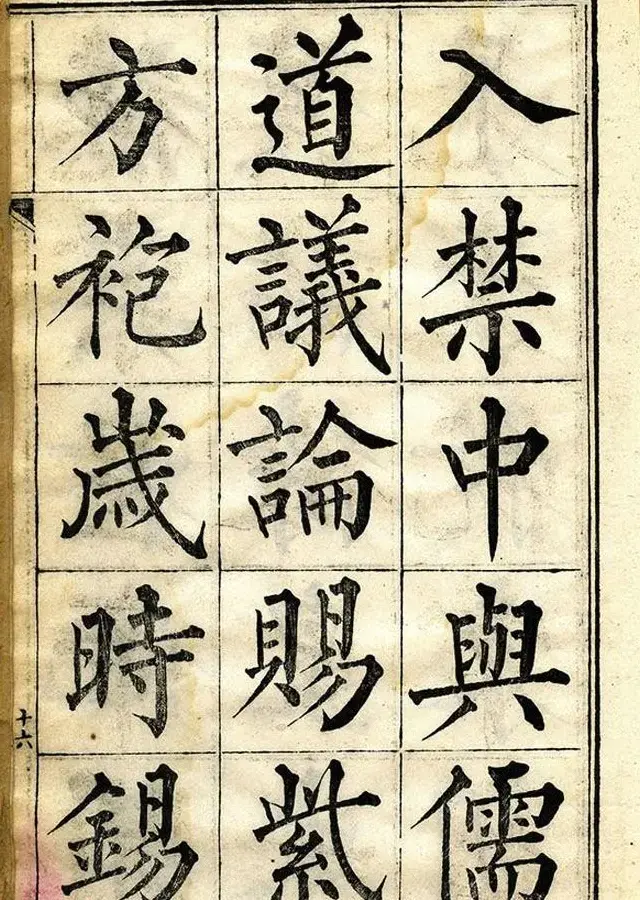 入禁中與儒
道議論賜紫
方袍歲時錫
十六